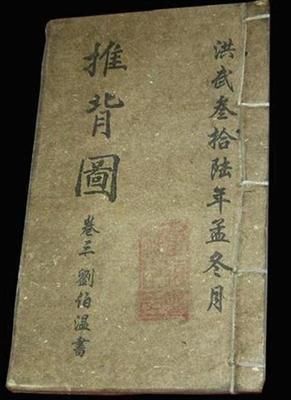 洪武叁拾陆年孟冬月
推背圖
卷三 劉伯溫書